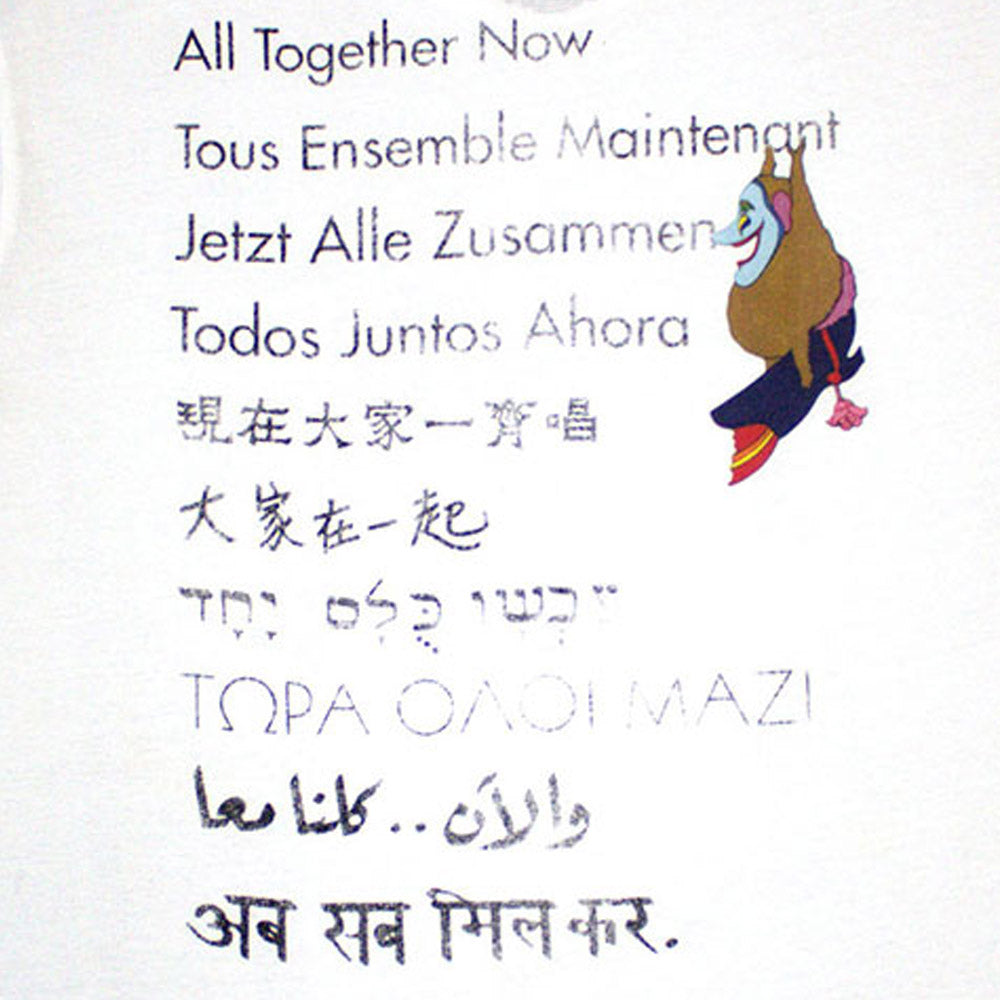 All Together Now
Tous Ensemble Maintenant
Jetzt Alle Zusammen
Todos Juntos Ahora
現在大家一齊唱
大家在一起
עַכְשָׁו כֻּלָם יַחָד
ΤΩΡΑ ΟΛΟΙ ΜΑΖΙ
والآن.. كلنا معا
अब सब मिल कर.